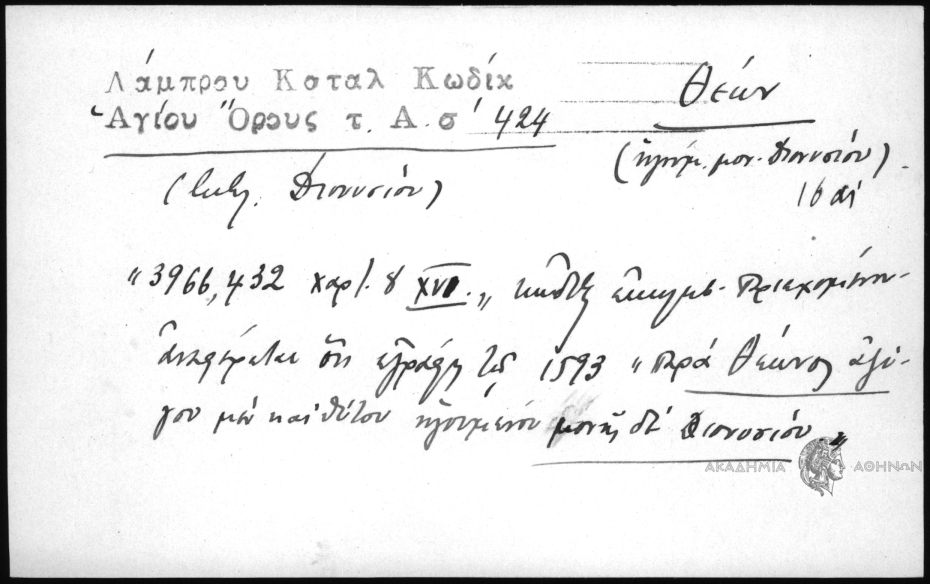 Λάμπρου Καταλ Κωδίκ
Ἁγίου Ὄρους τ. Α σ' 424
Θεών
(ἡγούμ. μον. Διονυσίου)
16 αἰ
(Διονυσίου)
"3966,432 χαρτ. 8 XVI." κῶδιξ ἐκκλησ. περιεχομένου
ἀναφέρεται ὅτι ἐγράφη τῷ 1593 "παρὰ Θεώνος
μὲν καὶ θύτου ἡγουμένου μονῆς δὲ Διονυσίου"
ΑΚΑΔΗΜΙΑ ΑΘΗΝΩΝ